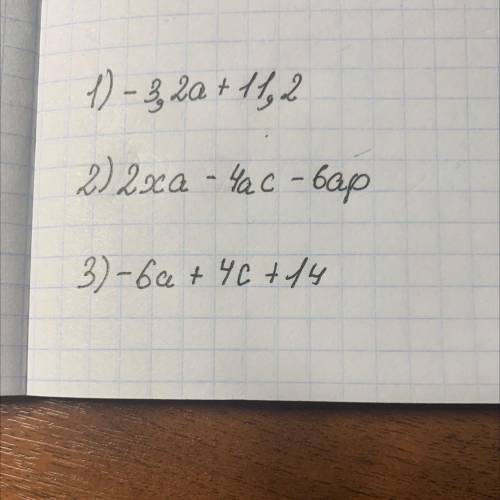 1) - 3,2a + 11,2
2) 2xa - 4ac - 6ap
3) - 6a + 4c + 14